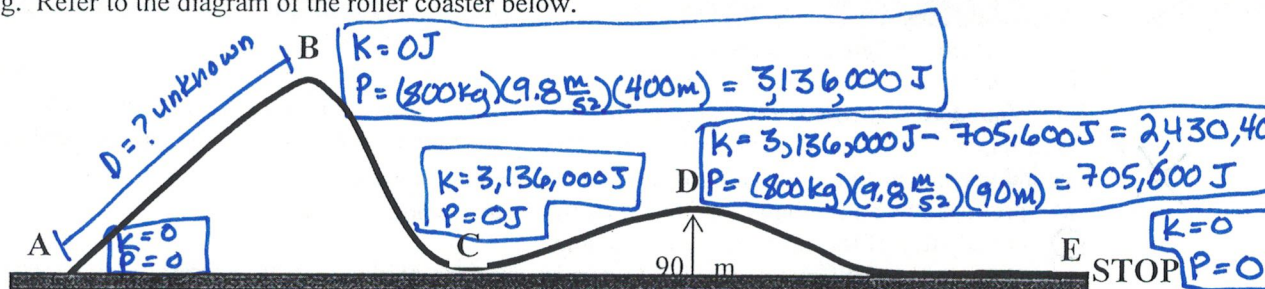 g. Refer to the diagram of the roller coaster below.
D = ? unknown
B
K = 0J
P = (800kg)(9.8 m/s2)(400m) = 3,136,000 J
K = 3,136,000J - 705,600J = 2,430,40
D
P = (800kg)(9.8 m/s2)(90m) = 705,600 J
K = 3,136,000J
P = 0J
A
K = 0
P = 0
C
90 m
E
STOP
K = 0
P = 0